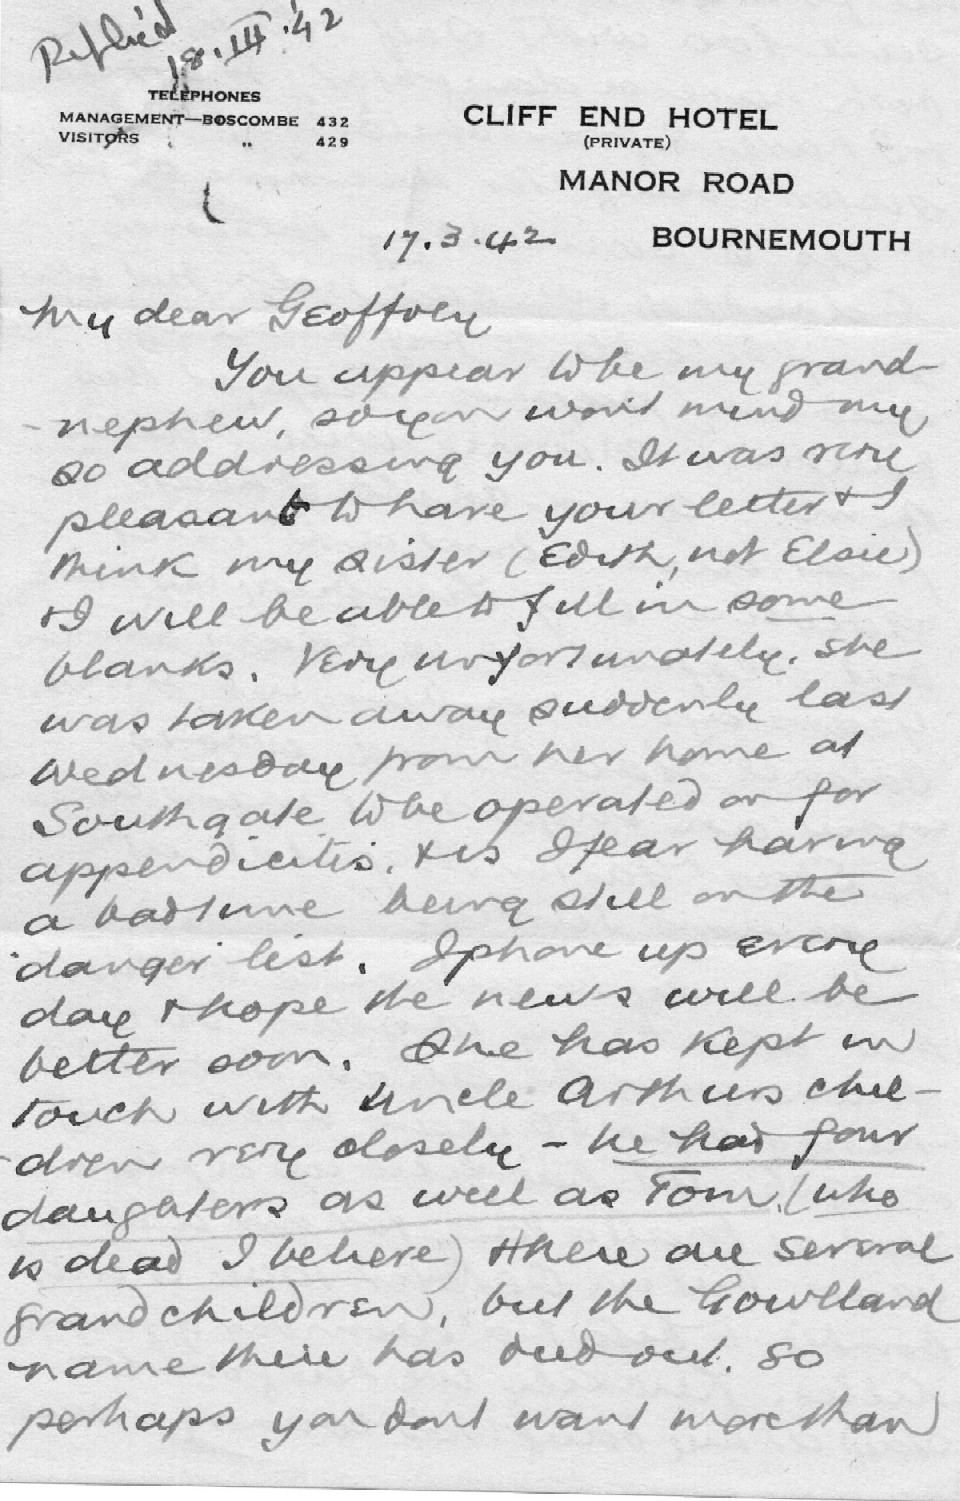 Replied
18.III.'42
TELEPHONES
MANAGEMENT—BOSCOMBE 432
VISITORS " 429
CLIFF END HOTEL
(PRIVATE)
MANOR ROAD
BOURNEMOUTH
17.3.42
My dear Geoffrey
You appear to be my grand-
-nephew, so you won't mind my
so addressing you. It was very
pleasant to have your letter & I
think my sister (Edith, not Elsie)
& I will be able to fill in some
blanks. Very unfortunately, she
was taken away suddenly last
Wednesday from her home at
Southgate to be operated on for
appendicitis, & is I fear having
a bad time being still on the
'danger list. I phone up every
day & hope the news will be
better soon. She has kept in
touch with Uncle Arthurs chil-
-dren very closely - he had four
daughters as well as Tom, (who
is dead I believe) & there are several
grandchildren, but the Gowlland
name there has died out. So
perhaps you dont want more than